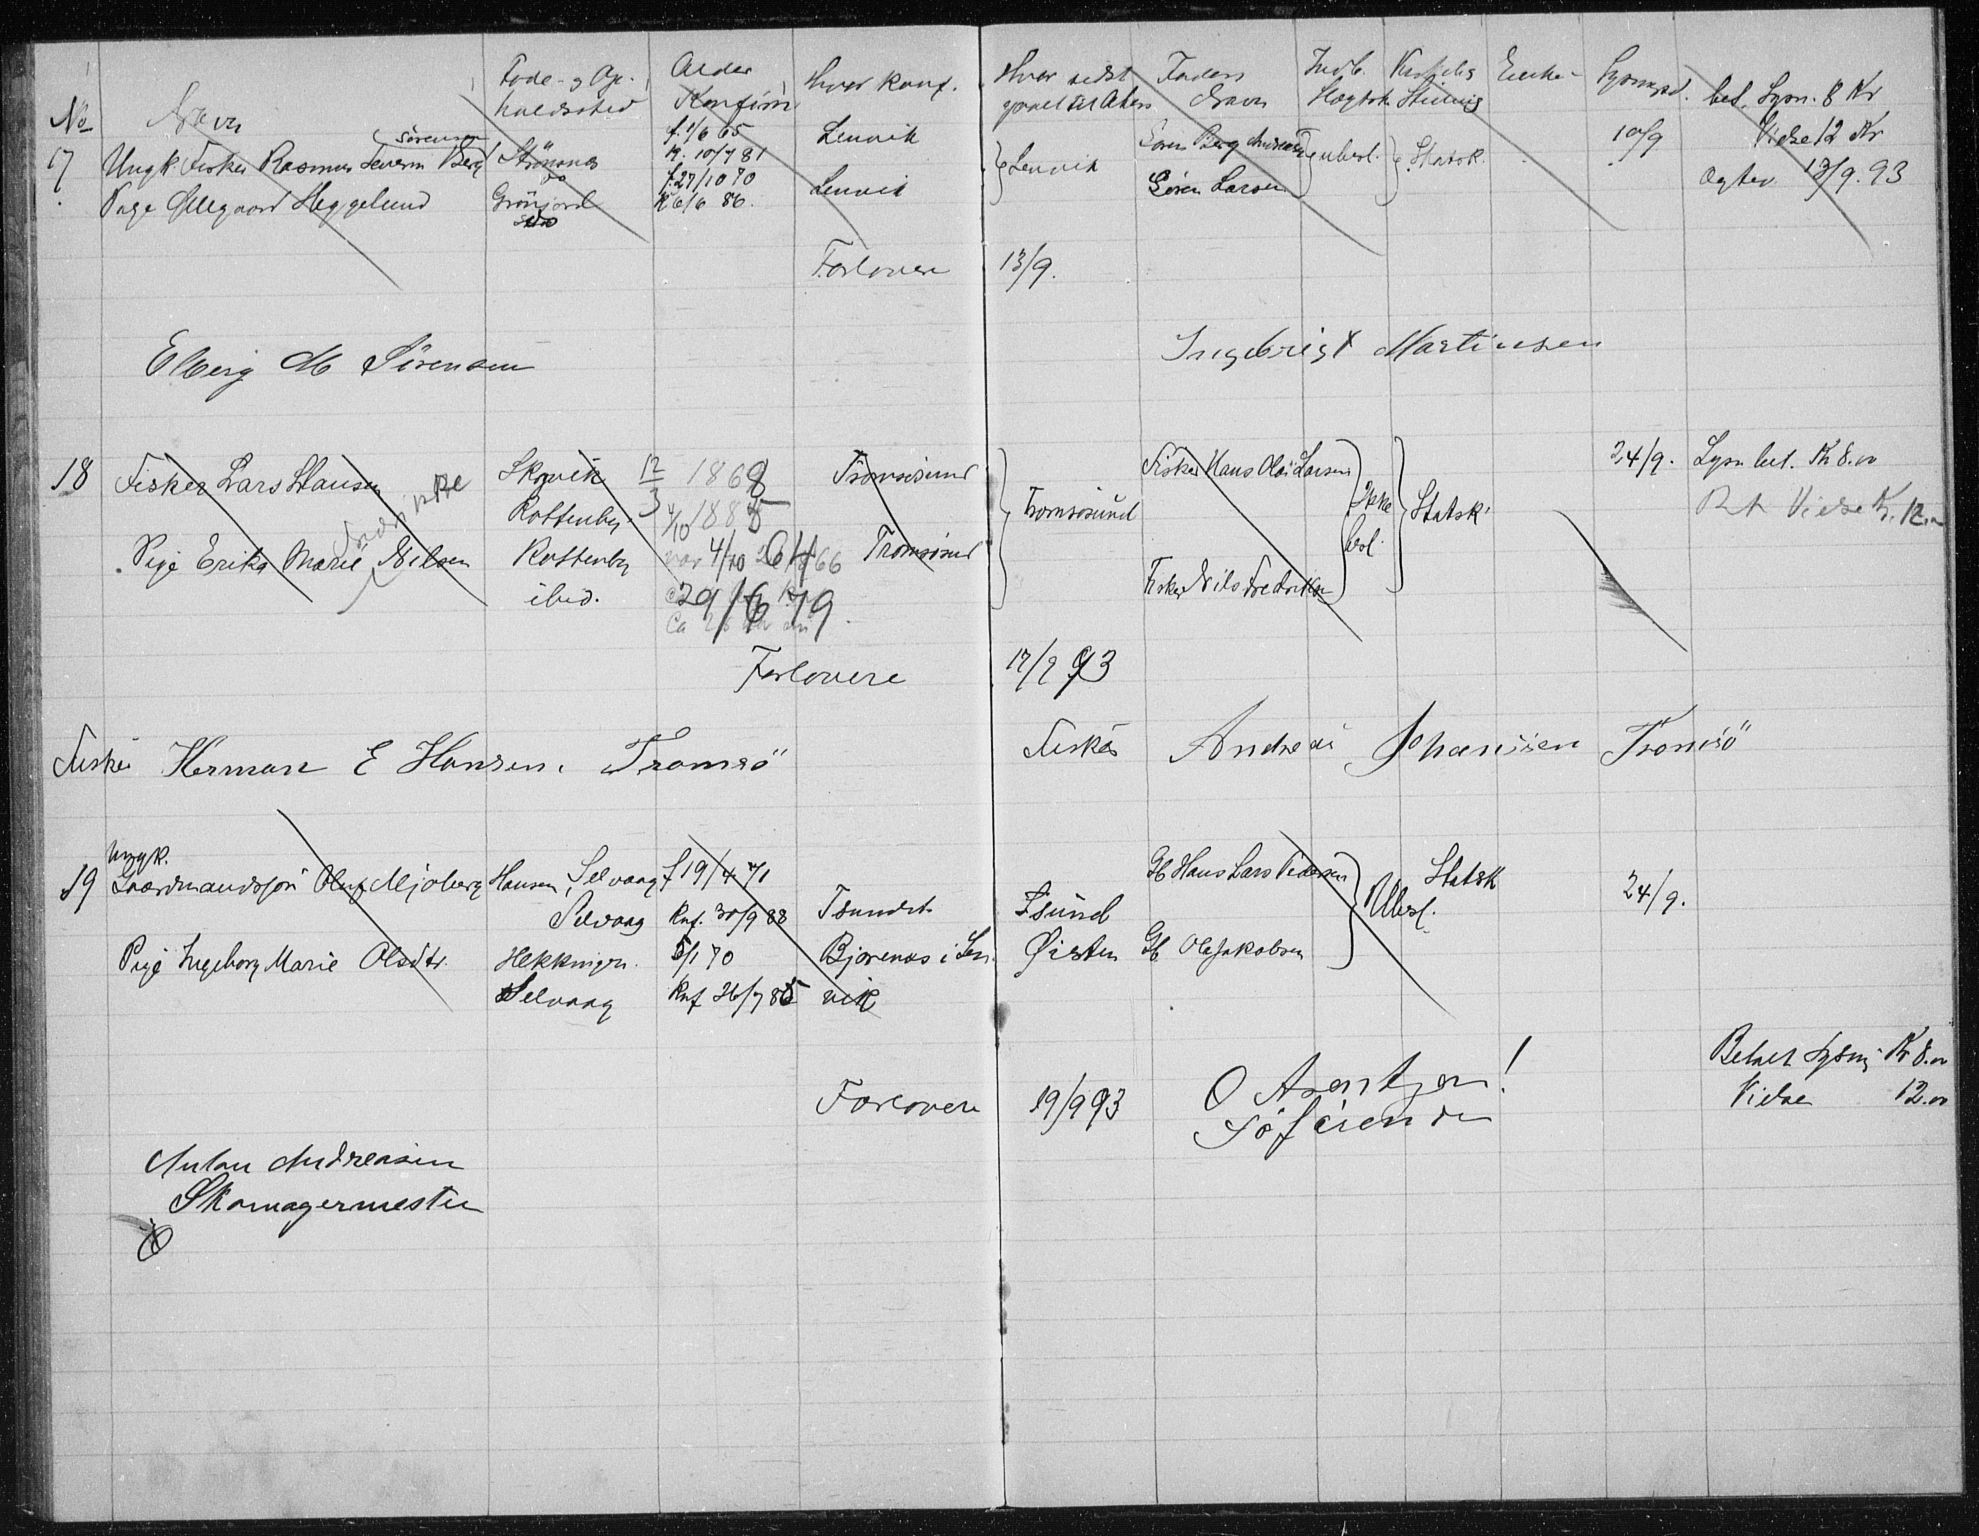 No Navn Føde- og Op- Alder Hvor konf. Hvor sidst Faders Indb. Kirkelig Enke- Lysningsd. bet. Lysn. 8 Kr
holdssted Konfirm. gaaet til Alters Navn Slægtsk. Stilling Vielse 12 Kr
Sørensen
17 Ungk. Fisker Rasmus Severin Berg f. 1/6 65 Lenvik Lenvik Søren Berg Ubesl. Statsk. 10/9
K. 10/7 81
Pige Ellegaard Heggelund Grönjord f. 27/10 70 Lenvik Sören Larsen Ægtev 13/9. 93
K 6/6 86.
Forlovere 13/9.
Elberg M Sörensen Ingebrigt Martinsen
18 Fisker Lars Hansen Skavik 12/3 1868 Tromsösund Tromsösund Fisker Hans Olai Larsen Ikke besl. Statsk. 24/9. Lysn bet. Kr 8.00
Rottenby. 4/10 1885 Vielse Kr. 12.00
ikke
Pige Erika Marie Nilsen Rottenby Tromsösund Fisker Nils Fredriksen
ibid. 29/6 79.
Forlovere 17/9 93
Fisker Herman E Hansen. Tromsö Fisker Andreas Johansen Tromsö
Ungk.
19 Gaardmandssön Oluf Mjoberg Hansen, Selvaag f 19/4 71 Gb Hans Lars Pedersen Ubesl. Statsk 24/9.
Selvaag Knf. 30/9 88 Tsundet Tsund
Pige Ingeborg Marie Olsdtr. Hekkingen 5/1 70 Bjorenæs i Len- Øisten Gb Ole Jakobsen
Selvaag Knf 26/7 85 vik
Betalt Lysn. Kr 8.00
Forlovere 19/9 93 O Arentzen! Vielse 12.00
Anton Andreasen
Skomagermester